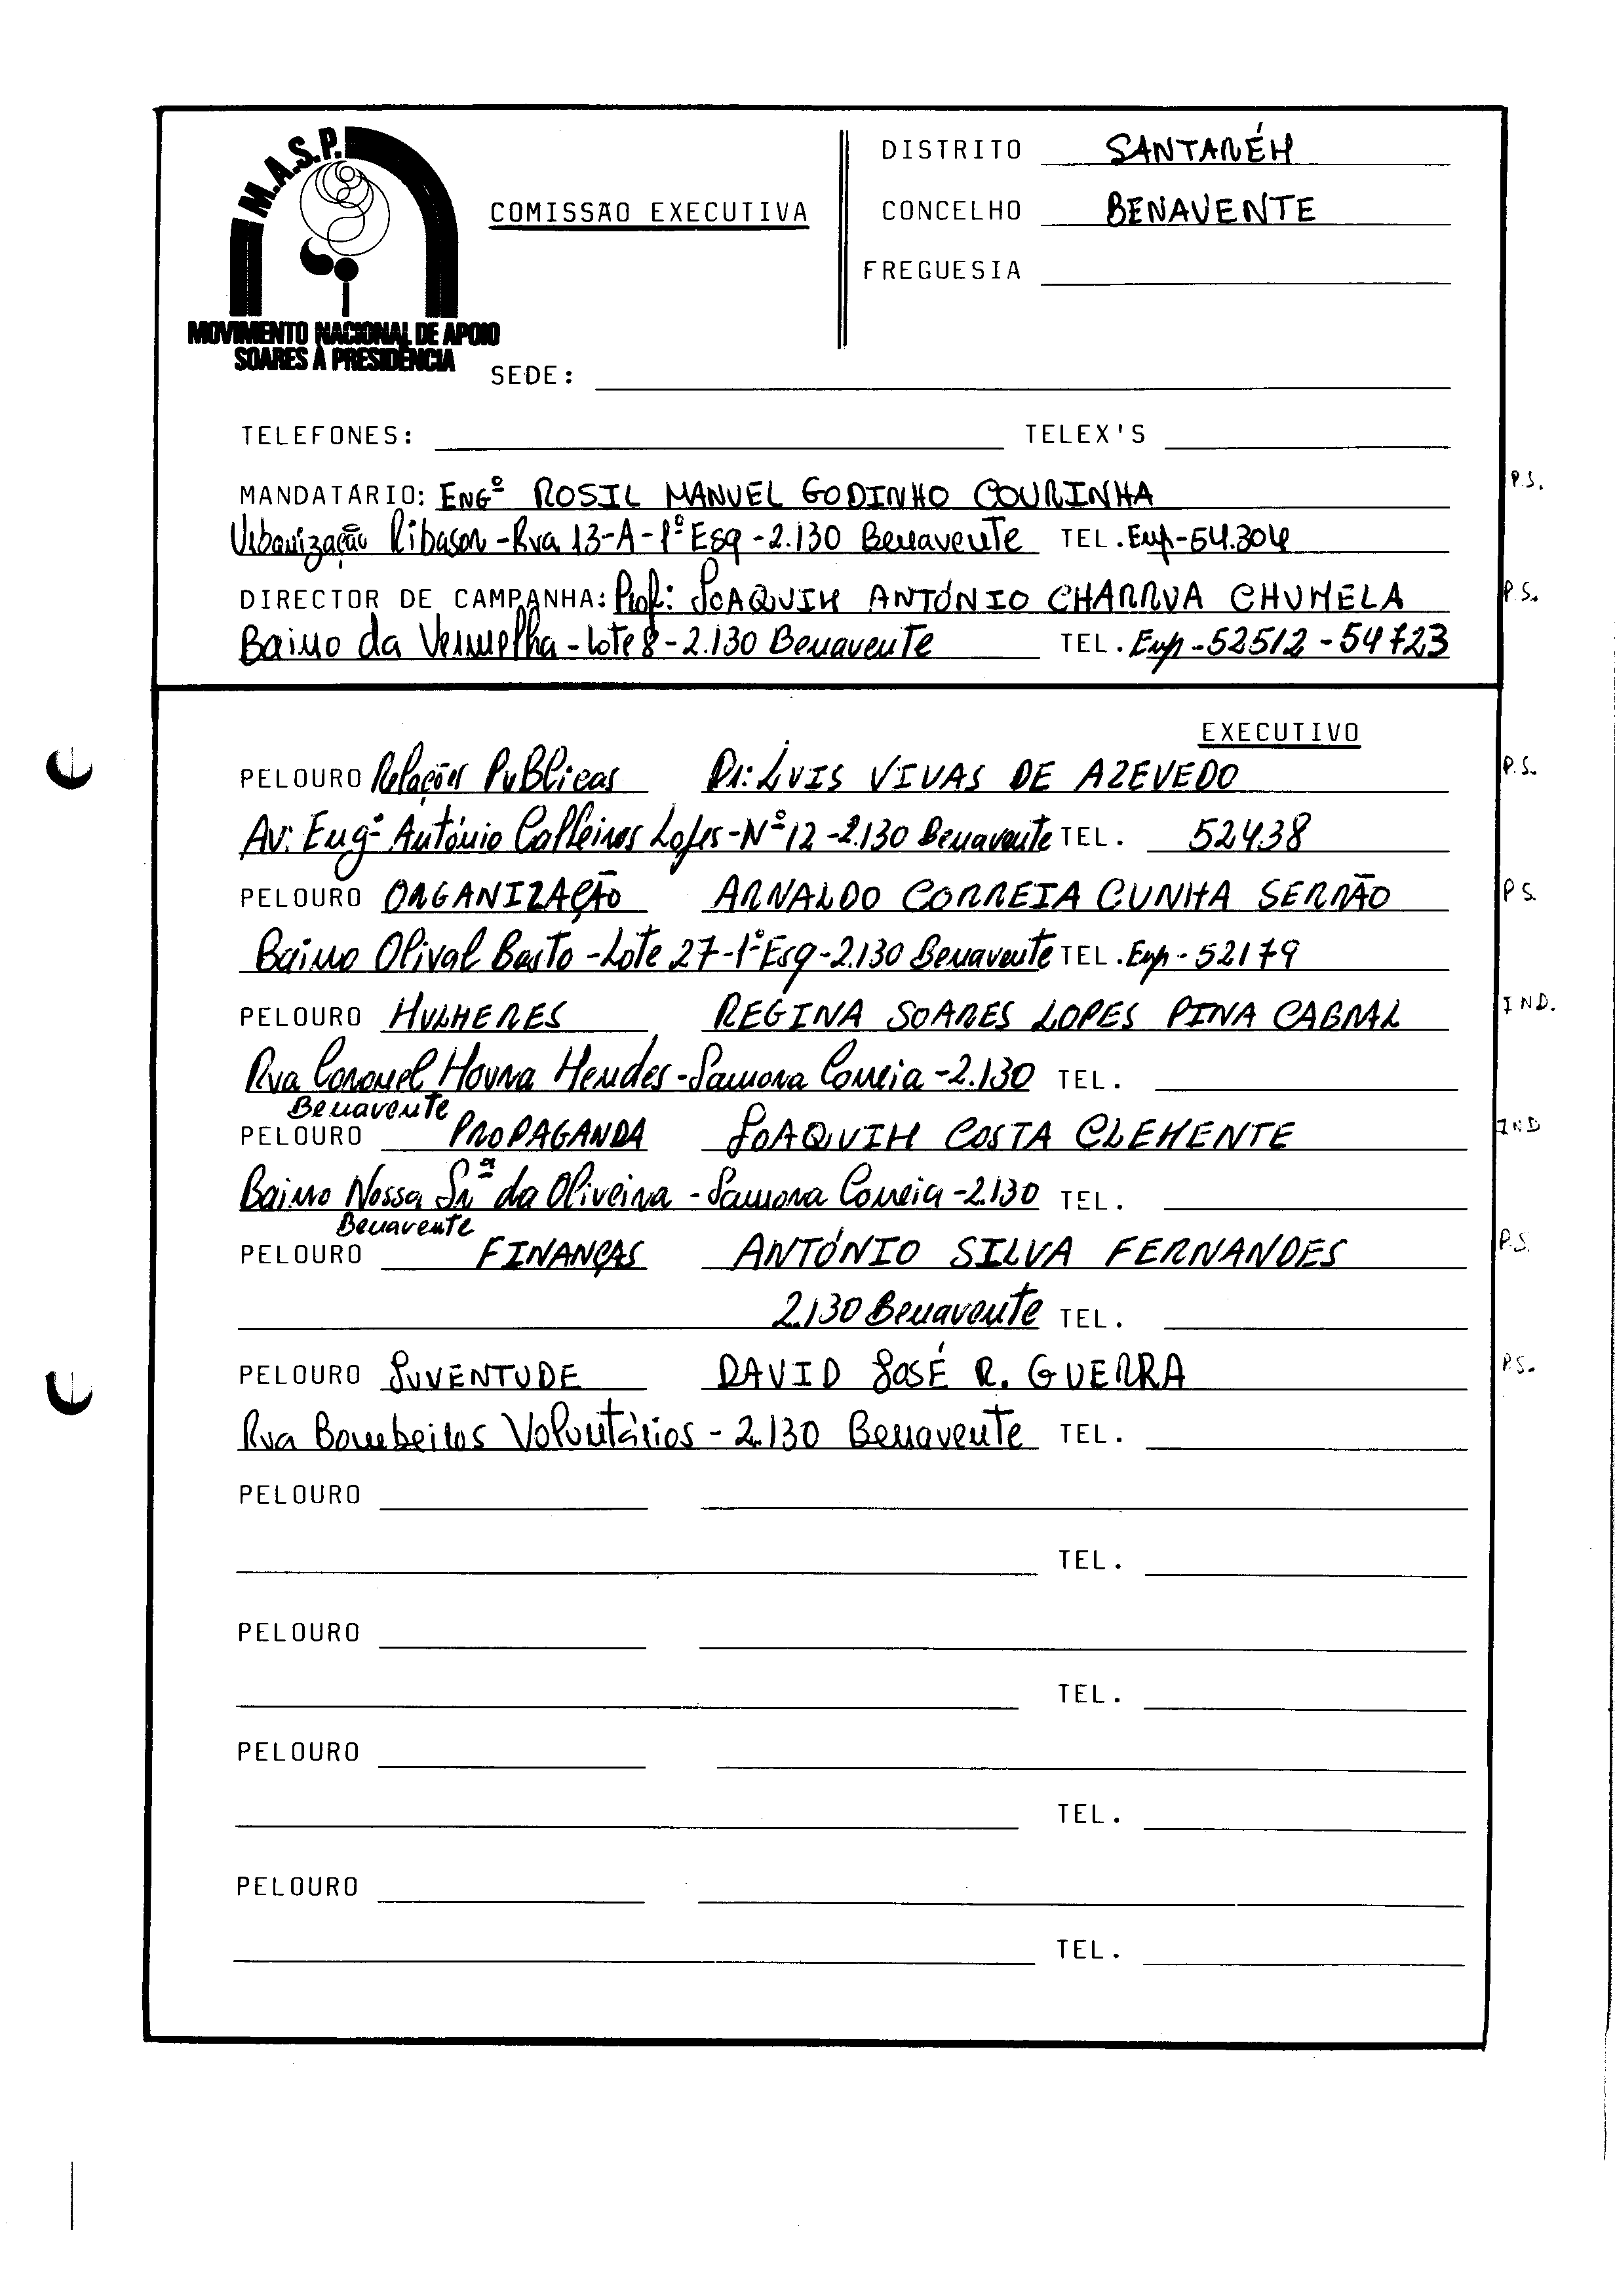 M.A.S.P.
MOVIMENTO NACIONAL DE APOIO
SOARES À PRESIDÊNCIA
COMISSÃO EXECUTIVA
DISTRITO SANTARÉM
CONCELHO BENAVENTE
FREGUESIA
SEDE:
TELEFONES: TELEX'S
MANDATÁRIO: ENGº ROSIL MANUEL GODINHO COURINHA P.S.
Urbanização Ribasor - Rua 13-A-1º Esq - 2.130 Benavente TEL. Emp-54.304
DIRECTOR DE CAMPANHA: Prof: JOAQUIM ANTÓNIO CHARRUA CHUMELA P.S.
Bairro da Vermelha - Lote 8 - 2.130 Benavente TEL. Emp-52512-54723
EXECUTIVO
PELOURO Relações Publicas Dr: LUIS VIVAS DE AZEVEDO P.S.
Av: Engº António Calheiros Lopes - Nº 12 - 2.130 Benavente TEL. 52438
PELOURO ORGANIZAÇÃO ARNALDO CORREIA CUNHA SERRÃO P S.
Bairro Olival Basto - Lote 27-1º Esq - 2.130 Benavente TEL. Emp-52179
PELOURO MULHERES REGINA SOARES LOPES PINA CABRAL IND.
Rua Coronel Moura Mendes - Samora Correia - 2.130 TEL.
Benavente
PELOURO PROPAGANDA JOAQUIM COSTA CLEMENTE IND
Bairro Nossa Srª da Oliveira - Samora Correia - 2.130 TEL.
Benavente
PELOURO FINANÇAS ANTÓNIO SILVA FERNANDES P.S.
2.130 Benavente TEL.
PELOURO JUVENTUDE DAVID JOSÉ R. GUERRA P.S.
Rua Bombeiros Voluntários - 2.130 Benavente TEL.
PELOURO
TEL.
PELOURO
TEL.
PELOURO
TEL.
PELOURO
TEL.